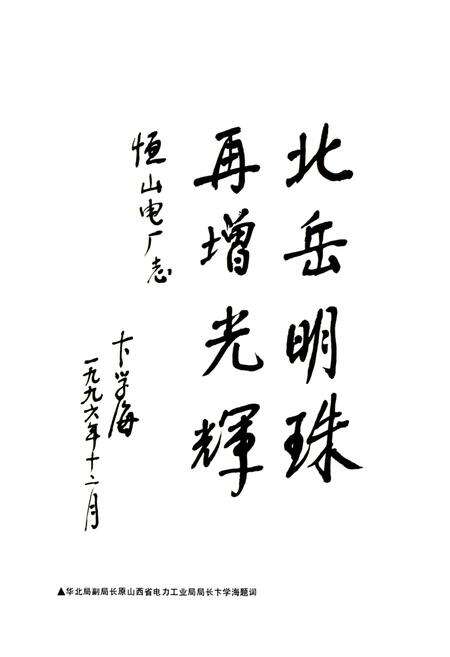 北岳明珠
再增光輝
恒山电厂志
卞学海
一九九六年十二月
▲华北局副局长原山西省电力工业局局长卞学海题词